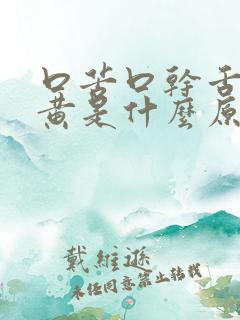 口苦口幹舌
黃是什麼原
戴維遜
未经同意禁止转载